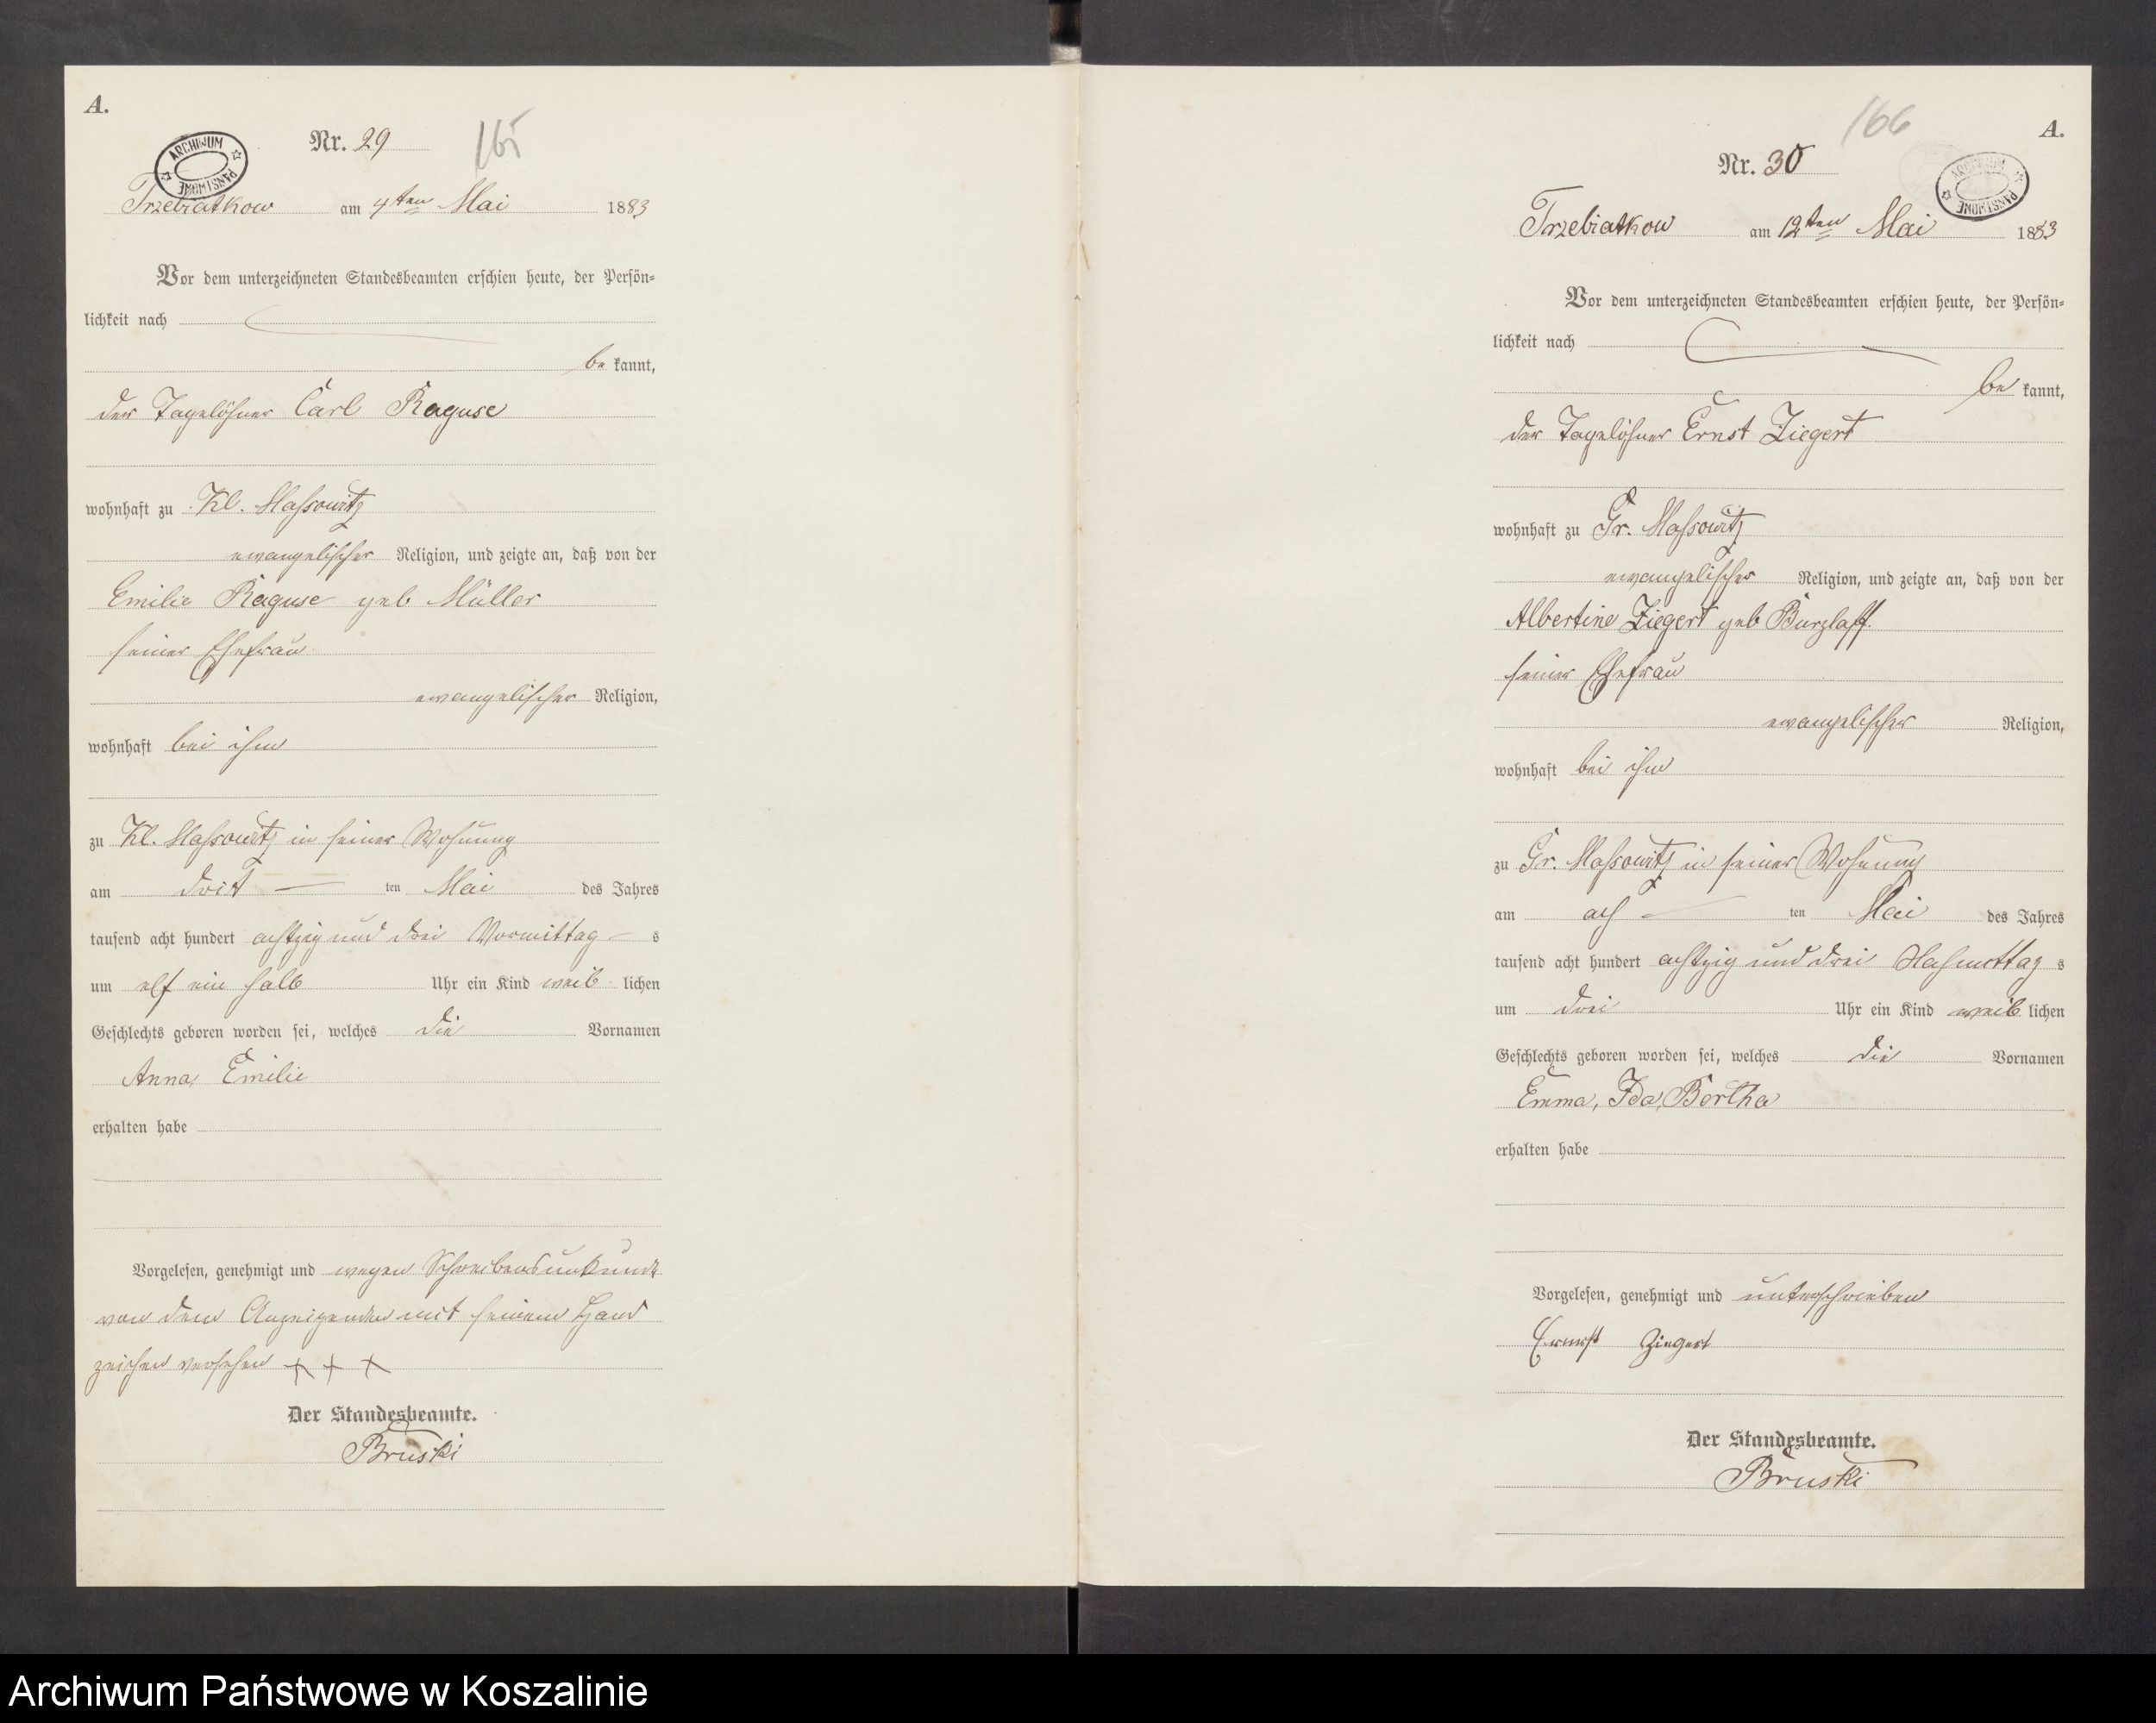 A.
Nr. 29
165
ARCHIWUM PAŃSTWOWE
Trzebiatkow am 4ten Mai 1883
Vor dem unterzeichneten Standesbeamten erschien heute, der Persön-
lichkeit nach
be kannt,
der Tagelöhner Carl Raguse
wohnhaft zu Kl. Massowitz
evangelischer Religion, und zeigte an, daß von der
Emilie Raguse geb Müller
seiner Ehefrau
evangelischer Religion,
wohnhaft bei ihm
zu Kl. Massowitz in seiner Wohnung
am dritt ten Mai des Jahres
tausend acht hundert achtzig und drei Vormittag s
um elf ein halb Uhr ein Kind weib lichen
Geschlechts geboren worden sei, welches die Vornamen
Anna, Emilie
erhalten habe
Vorgelesen, genehmigt und wegen Schreibensunkunde
von dem Anzeigenden mit seinem Hand
zeichen versehen + + +
Der Standesbeamte.
Bruski
166
A.
Nr. 30
ARCHIWUM PAŃSTWOWE
Trzebiatkow am 12ten Mai 1883
Vor dem unterzeichneten Standesbeamten erschien heute, der Persön-
lichkeit nach
be kannt,
der Tagelöhner Ernst Ziegert
wohnhaft zu Gr. Massowitz
evangelischer Religion, und zeigte an, daß von der
Albertine Ziegert geb Burzlaff
seiner Ehefrau
evangelischer Religion,
wohnhaft bei ihm
zu Gr. Massowitz in seiner Wohnung
am ach ten Mai des Jahres
tausend acht hundert achtzig und drei Nachmittag s
um drei Uhr ein Kind weib lichen
Geschlechts geboren worden sei, welches die Vornamen
Emma, Ida, Bertha
erhalten habe
Vorgelesen, genehmigt und unterschrieben
Ernst Ziegert
Der Standesbeamte.
Bruski
Archiwum Państwowe w Koszalinie